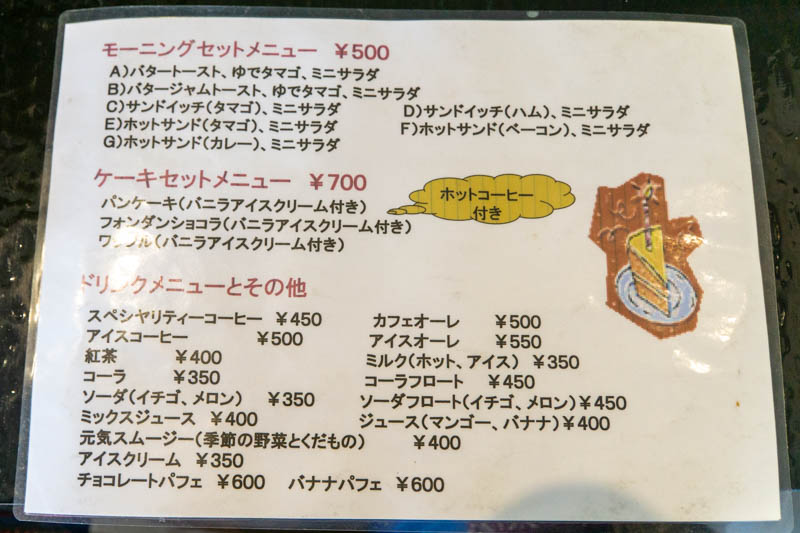 モーニングセットメニュー ￥500
A)バタートースト、ゆでタマゴ、ミニサラダ
B)バタージャムトースト、ゆでタマゴ、ミニサラダ
C)サンドイッチ(タマゴ)、ミニサラダ D)サンドイッチ(ハム)、ミニサラダ
E)ホットサンド(タマゴ)、ミニサラダ F)ホットサンド(ベーコン)、ミニサラダ
G)ホットサンド(カレー)、ミニサラダ
ケーキセットメニュー ￥700
ホットコーヒー
付き
パンケーキ(バニラアイスクリーム付き)
フォンダンショコラ(バニラアイスクリーム付き)
ワッフル(バニラアイスクリーム付き)
ドリンクメニューとその他
スペシヤリティーコーヒー ￥450 カフェオーレ ￥500
アイスコーヒー ￥500 アイスオーレ ￥550
紅茶 ￥400 ミルク(ホット、アイス) ￥350
コーラ ￥350 コーラフロート ￥450
ソーダ(イチゴ、メロン) ￥350 ソーダフロート(イチゴ、メロン)￥450
ミックスジュース ￥400 ジュース(マンゴー、バナナ)￥400
元気スムージー(季節の野菜とくだもの) ￥400
アイスクリーム ￥350
チョコレートパフェ ￥600 バナナパフェ ￥600